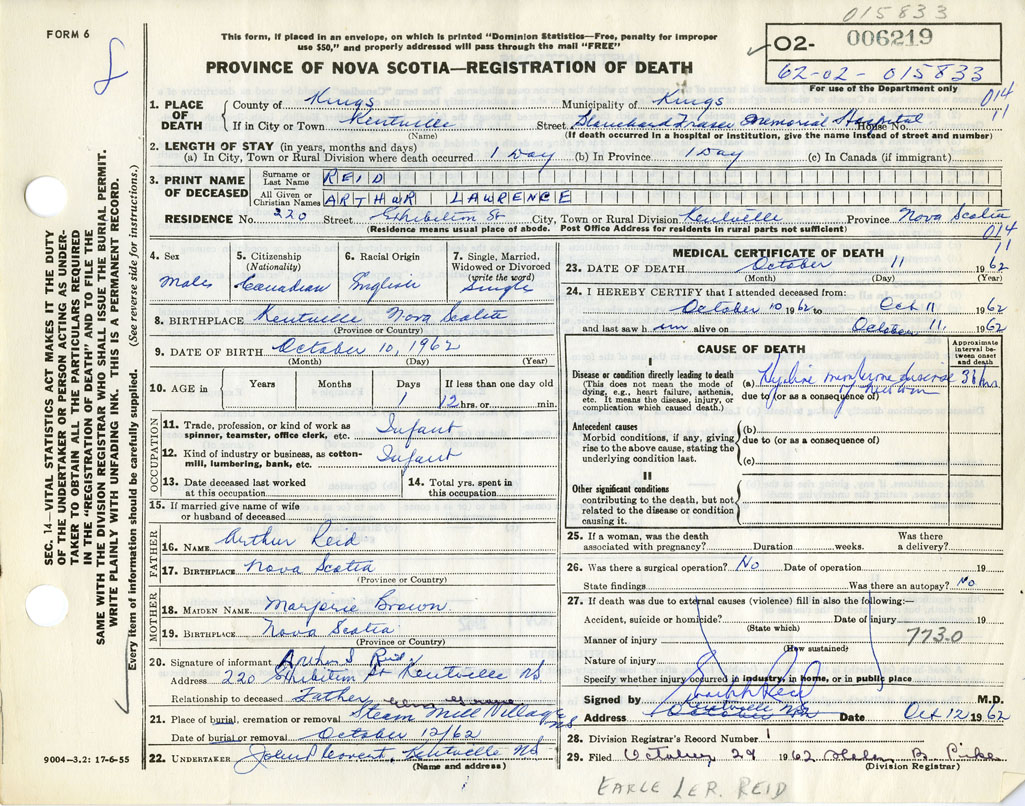 015833
FORM 6
8
This form, if placed in an envelope, on which is printed "Dominion Statistics—Free, penalty for improper
use $50," and properly addressed will pass through the mail "FREE"
PROVINCE OF NOVA SCOTIA—REGISTRATION OF DEATH
O2- 006219
62-02-015833
For use of the Department only
014
11
SEC. 14—VITAL STATISTICS ACT MAKES IT THE DUTY
OF THE UNDERTAKER OR PERSON ACTING AS UNDER-
TAKER TO OBTAIN ALL THE PARTICULARS REQUIRED
IN THE "REGISTRATION OF DEATH" AND TO FILE THE
SAME WITH THE DIVISION REGISTRAR WHO SHALL ISSUE THE BURIAL PERMIT.
WRITE PLAINLY WITH UNFADING INK. THIS IS A PERMANENT RECORD.
Every item of information should be carefully supplied. (See reverse side for instructions.)
1. PLACE OF DEATH
County of Kings Municipality of Kings
If in City or Town Kentville Street Blanchard Fraser Memorial Hospital House No.
(Name) (If death occurred in a hospital or institution, give the name instead of street and number)
2. LENGTH OF STAY (in years, months and days)
(a) In City, Town or Rural Division where death occurred 1 Day (b) In Province 1 Day (c) In Canada (if immigrant)
3. PRINT NAME OF DECEASED
Surname or Last Name REID
All Given or Christian Names ARTHUR LAWRENCE
RESIDENCE No. 220 Street Exhibition St City, Town or Rural Division Kentville Province Nova Scotia
(Residence means usual place of abode. Post Office Address for residents in rural parts not sufficient)
014
11
4. Sex 5. Citizenship (Nationality) 6. Racial Origin 7. Single, Married, Widowed or Divorced (write the word)
Male Canadian English Single
8. BIRTHPLACE Kentville Nova Scotia
(Province or Country)
9. DATE OF BIRTH October 10, 1962
(Month) (Day) (Year)
10. AGE in Years Months Days If less than one day old
1 12 hrs. or min.
OCCUPATION
11. Trade, profession, or kind of work as spinner, teamster, office clerk, etc. Infant
12. Kind of industry or business, as cotton-mill, lumbering, bank, etc. Infant
13. Date deceased last worked at this occupation
14. Total yrs. spent in this occupation
15. If married give name of wife or husband of deceased
FATHER
16. NAME Arthur Reid
17. BIRTHPLACE Nova Scotia
(Province or Country)
MOTHER
18. MAIDEN NAME Marjorie Brown
19. BIRTHPLACE Nova Scotia
(Province or Country)
20. Signature of informant Arthur Reid
Address 220 Exhibition St Kentville NS
Relationship to deceased Father
21. Place of burial, cremation or removal Steam Mill Village NS
Date of burial or removal October 12/62
22. UNDERTAKER Kentville NS
(Name and address)
9004—3.2: 17-6-55
MEDICAL CERTIFICATE OF DEATH
23. DATE OF DEATH October 11 1962
(Month) (Day) (Year)
24. I HEREBY CERTIFY that I attended deceased from:
October 10 1962 to Oct 11 1962
and last saw him alive on October 11, 1962
CAUSE OF DEATH
Approximate interval between onset and death
I
Disease or condition directly leading to death
(This does not mean the mode of dying, e.g., heart failure, asthenia, etc. It means the disease, injury, or complication which caused death.)
(a) Hyaline membrane disease of newborn
due to (or as a consequence of)
Antecedent causes
Morbid conditions, if any, giving rise to the above cause, stating the underlying condition last.
(b)
due to (or as a consequence of)
(c)
II
Other significant conditions
contributing to the death, but not related to the disease or condition causing it.
25. If a woman, was the death associated with pregnancy? Duration weeks. Was there a delivery?
26. Was there a surgical operation? No Date of operation 19
State findings Was there an autopsy? No
27. If death was due to external causes (violence) fill in also the following:—
Accident, suicide or homicide? Date of injury 19
(State which)
Manner of injury 773.0
(How sustained)
Nature of injury
Specify whether injury occurred in industry, in home, or in public place
Signed by Reid M.D.
Address Kentville NS Date Oct 12 1962
28. Division Registrar's Record Number 1
29. Filed October 29 1962 Helen B. Pike
(Division Registrar)
EARLE LER. REID